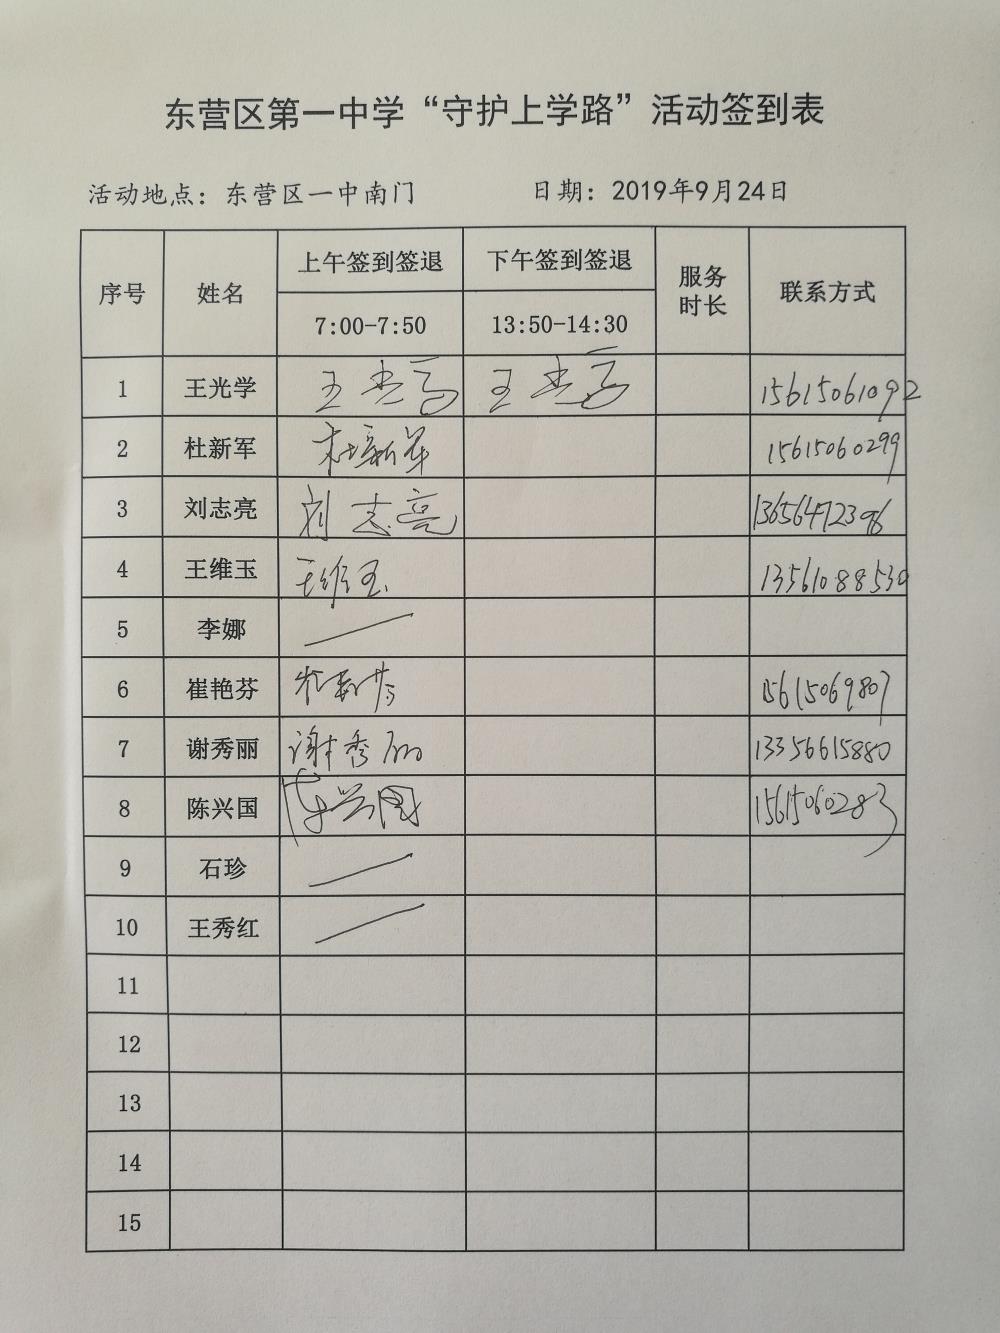 东营区第一中学“守护上学路”活动签到表
活动地点：东营区一中南门 日期：2019年9月24日
序号 姓名 上午签到签退 下午签到签退 服务时长 联系方式
7:00-7:50 13:50-14:30
1 王光学 王光学 王光学 15615061092
2 杜新军 杜新军 15615060299
3 刘志亮 刘志亮 13656472396
4 王维玉 王维玉 13561088530
5 李娜
6 崔艳芬 崔艳芬 15615069807
7 谢秀丽 谢秀丽 13356615880
8 陈兴国 陈兴国 15615060283
9 石珍
10 王秀红
11
12
13
14
15